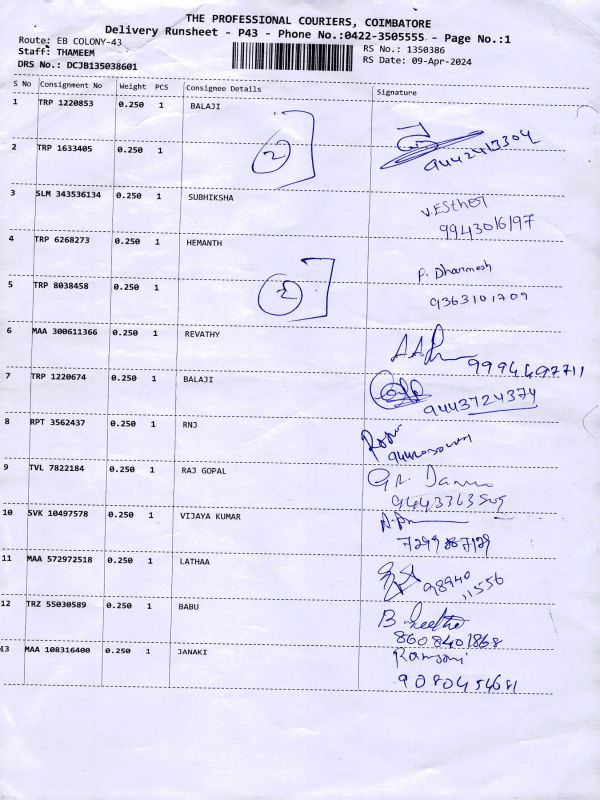 THE PROFESSIONAL COURIERS, COIMBATORE
Delivery Runsheet - P43 - Phone No.:0422-3505555 - Page No.:1
Route: EB COLONY-43
RS No.: 1350386
Staff: THAMEEM
RS Date: 09-Apr-2024
DRS No.: DCJB135038601
S No Consignment No Weight PCS Consignee Details Signature
1 TRP 1220853 0.250 1 BALAJI
9442413304
2 TRP 1633405 0.250 1 2
3 SLM 343536134 0.250 1 SUBHIKSHA V.Esther
9943016197
4 TRP 6268273 0.250 1 HEMANTH
P. Dharmesh
5 TRP 8038458 0.250 1 2 9363101709
6 MAA 300611366 0.250 1 REVATHY
9994497711
7 TRP 1220674 0.250 1 BALAJI
9443724374
8 RPT 3562437 0.250 1 RNJ
9 TVL 7822184 0.250 1 RAJ GOPAL
10 SVK 10497578 0.250 1 VIJAYA KUMAR
11 MAA 572972518 0.250 1 LATHAA
98940
11556
12 TRZ 55030589 0.250 1 BABU B
8608401868
13 MAA 108316400 0.250 1 JANAKI
9080454681